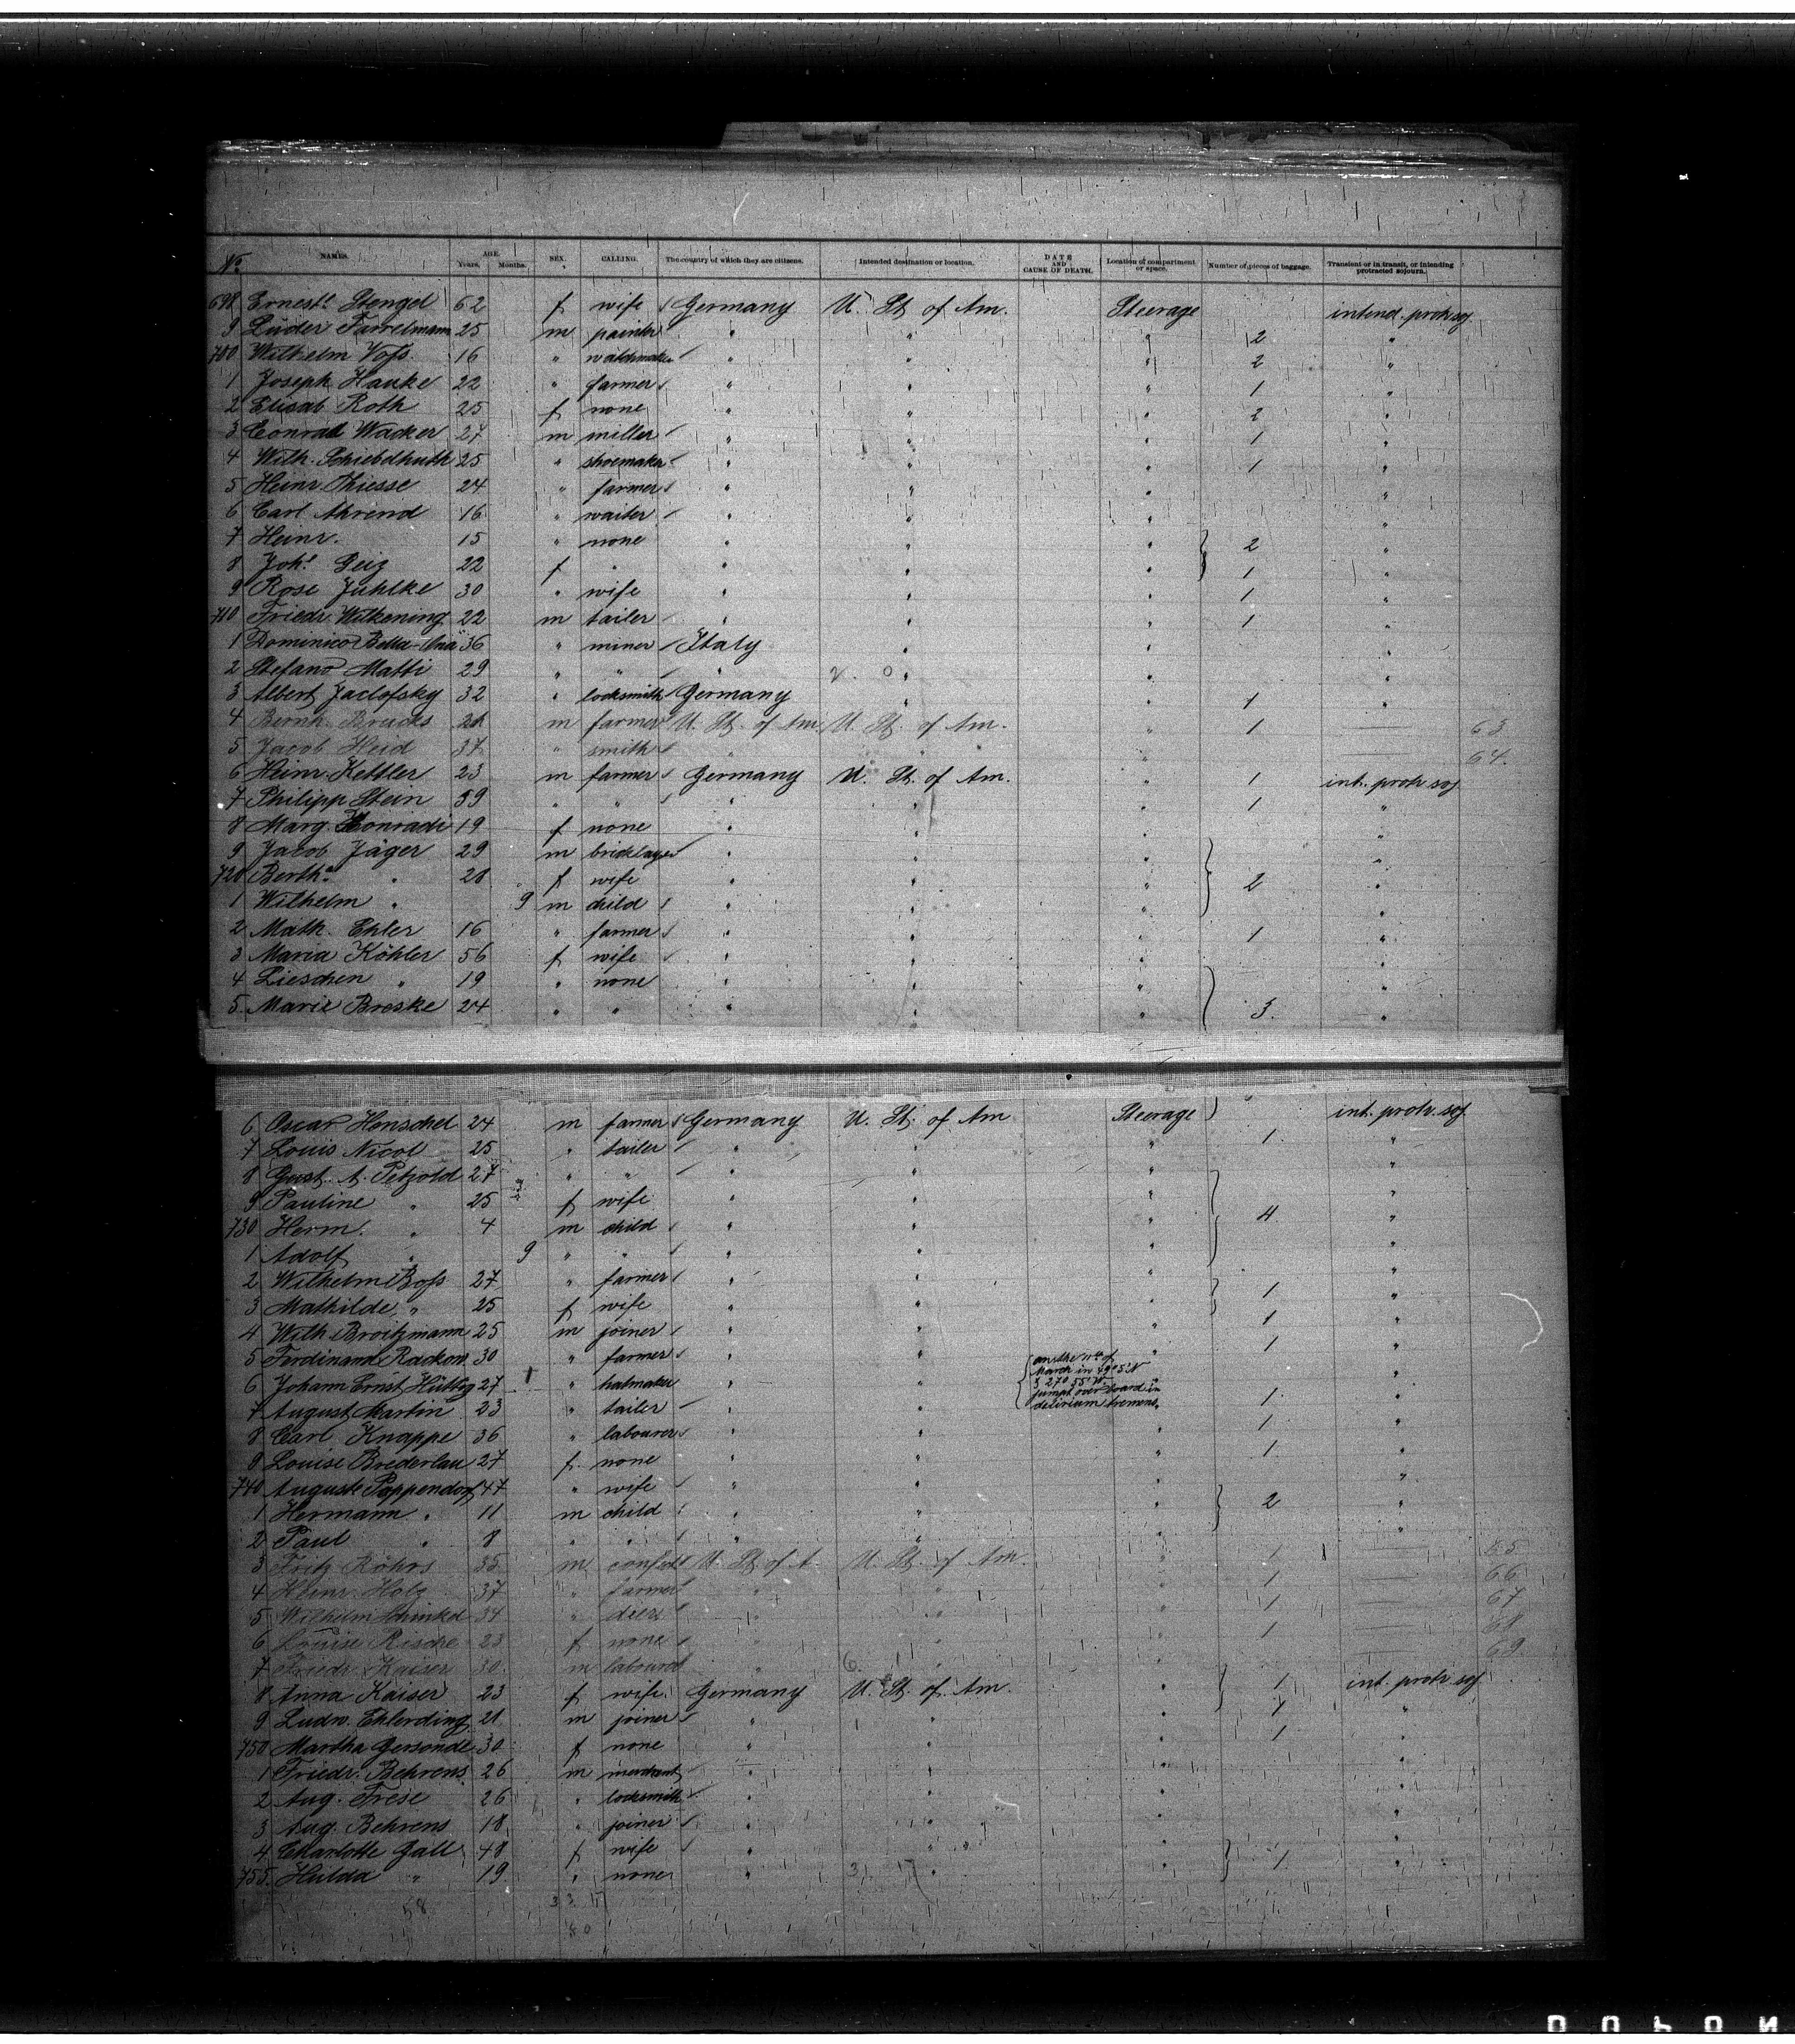 No. NAMES. AGE. Years. Months. SEX. CALLING. The country of which they are citizens. Intended destination or location. DATE AND CAUSE OF DEATH. Location of compartment or space. Number of pieces of baggage. Transient or in transit, or intending protracted sojourn.
698 Erneste Stengel 62 f wife Germany U. St. of Am. Steerage intend. protr. soj.
9 Lüder 25 m painter " " " 2 "
700 Wilhelm Voss 16 " watchmaker " " " 2 "
1 Joseph Hauke 22 " farmer " " " 1 "
2 Elisab Roth 25 f none " " " 2 "
3 Conrad Wacker 27 m miller " " " 1 "
4 Wilh. 25 " shoemaker " " " 1 "
5 Heinr. Thiesse 24 " farmer " " " "
6 Carl Ahrend 16 " waiter " " " "
7 Heinr. 15 " none " " " 2 "
8 Johe Geiz 22 f " " " " 1 "
9 Rose Juhlke 30 " wife " " " 1 "
710 Friedr. Wilkening 22 m tailer " " " 1 "
1 Dominico 36 " miner Italy " " "
2 Stefano Matti 29 " " " " " "
3 Albert Jaclofsky 32 " locksmith Germany " " 1 "
4 Bernh. Brucks m farmer U. St. of Am. U. St. of Am. " 1 — 63
5 Jacob Heid 37 " smith " " " — 64.
6 Heinr. Kettler 23 m farmer Germany U. St. of Am. " 1 int. protr. soj
7 Philipp Stein 59 " " " " " 1 "
8 Marg. Konradi 19 f none " " " "
9 Jacob Jäger 29 m bricklayer " " " "
720 Bertha " 28 f wife " " " 2 "
1 Wilhelm " 9 m child " " " "
2 Math. Ehler 16 " farmer " " " 1 "
3 Maria Köhler 56 f wife " " " "
4 Lieschen " 19 " none " " " "
5 Marie Breske 24 " " " " " 3. "
6 Oscar Henschel 24 m farmer Germany U. St. of Am Steerage " int. protr. soj
7 Louis Nicol 25 " tailer " " " 1 "
8 Gust. A. Petzold 27 " " " " " "
9 Pauline " 25 f wife " " " "
730 Herm. " 4 m child " " " 4 "
1 Adolf " 9 " " " " " "
2 Wilhelm Boss 27 " farmer " " " 1 "
3 Mathilde " 25 f wife " " " 1 "
4 Wilh. Broitzmann 25 m joiner " " " 1 "
5 Ferdinand Rackow 30 " farmer " " " "
6 Johann Ernst Hüttig 27 " hatmaker " " on the 11th of March in 49° 5' N & 27° 55' W. jumpt over board in delirium tremens "
7 August Martin 23 " tailer " " 1 "
8 Carl Knappe 36 " labourer " " " 1 "
9 Louise Brederlau 27 f none " " " 1 "
740 Auguste Pappendorf 47 " wife " " " "
1 Hermann " 11 m child " " " 2 "
2 Paul " 8 " " " " " "
3 Fritz Röhrs 35 m U. St. of A. U. St. of Am. " 1 — 65
4 Heinr. Holz 37 " farmer " " " 1 — 66
5 Wilhelm Schinkel 34 " " " " 1 — 67
6 Louise Rische 23 f none " " " 1 — 68
7 Friedr. Kaiser 30 m labourer " " " — 69
8 Anna Kaiser 23 f wife Germany U. St. of Am. " 1 int. protr. soj
9 Ludw. Ehlerding 21 m joiner " " " 1 "
750 Martha Gersonde 30 f none " " " 1 "
1 Friedr. Behrens 26 m merchant " " " "
2 Aug. Frese 26 " locksmith " " " "
3 Aug. Behrens 18 " joiner " " " "
4 Charlotte Gall 48 f wife " " " 1 "
755. Hulda " 19 " none " " " "